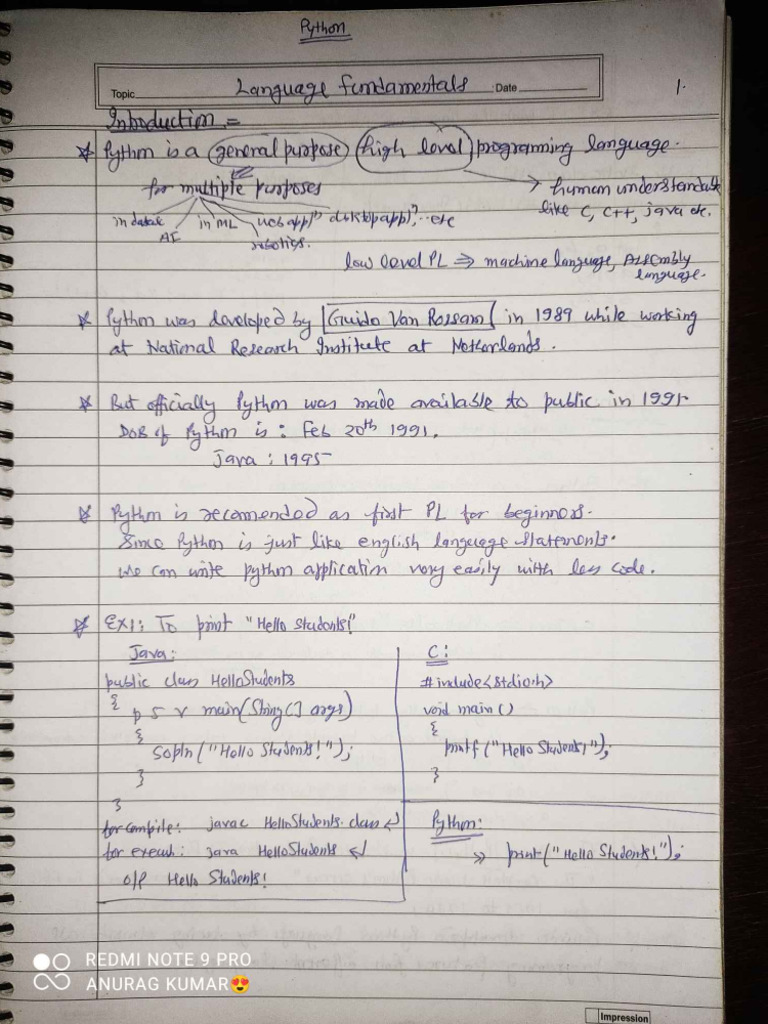 Python
Topic Language Fundamentals Date
1.
Introduction =
* Python is a general purpose high level programming language.
for multiple purposes
→ human understandable
like C, C++, java etc.
in AI in ML web appn desktop appn, .. etc
robotics.
low level PL ⇒ machine language, Assembly
language.
* Python was developed by Guido Van Rossam in 1989 while working
at National Research Institute at Netherlands.
* But officially Python was made available to public in 1991
DOB of Python is : Feb 20th 1991.
Java : 1995
* Python is recomended as first PL for beginners.
Since Python is just like english language statements.
we can write python application very easily with less code.
* EX1: To print "Hello Students!"
Java:
public class HelloStudents
{
p s v main(String[] args)
{
sopln("Hello Students!");
}
}
for compile: javac HelloStudents.class ↵
for execut: java HelloStudents ↵
o/p Hello Students!
C:
#include<stdio.h>
void main()
{
printf("Hello Students!");
}
Python:
>> print("Hello Students!");
REDMI NOTE 9 PRO
ANURAG KUMAR😍
Impression